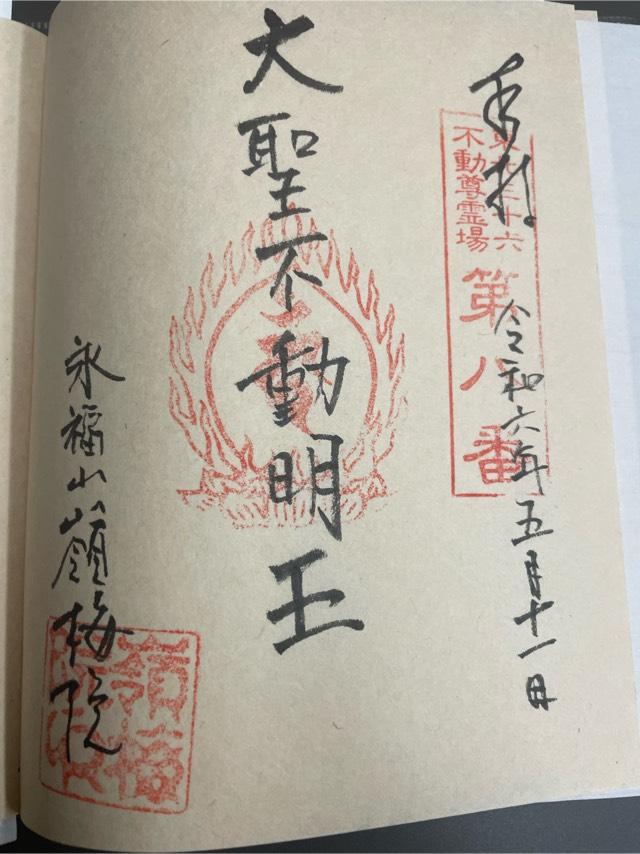 奉拝
東北三十六
不動尊霊場
第八番
令和六年五月十一日
大聖不動明王
永福山嶺梅院
嶺梅